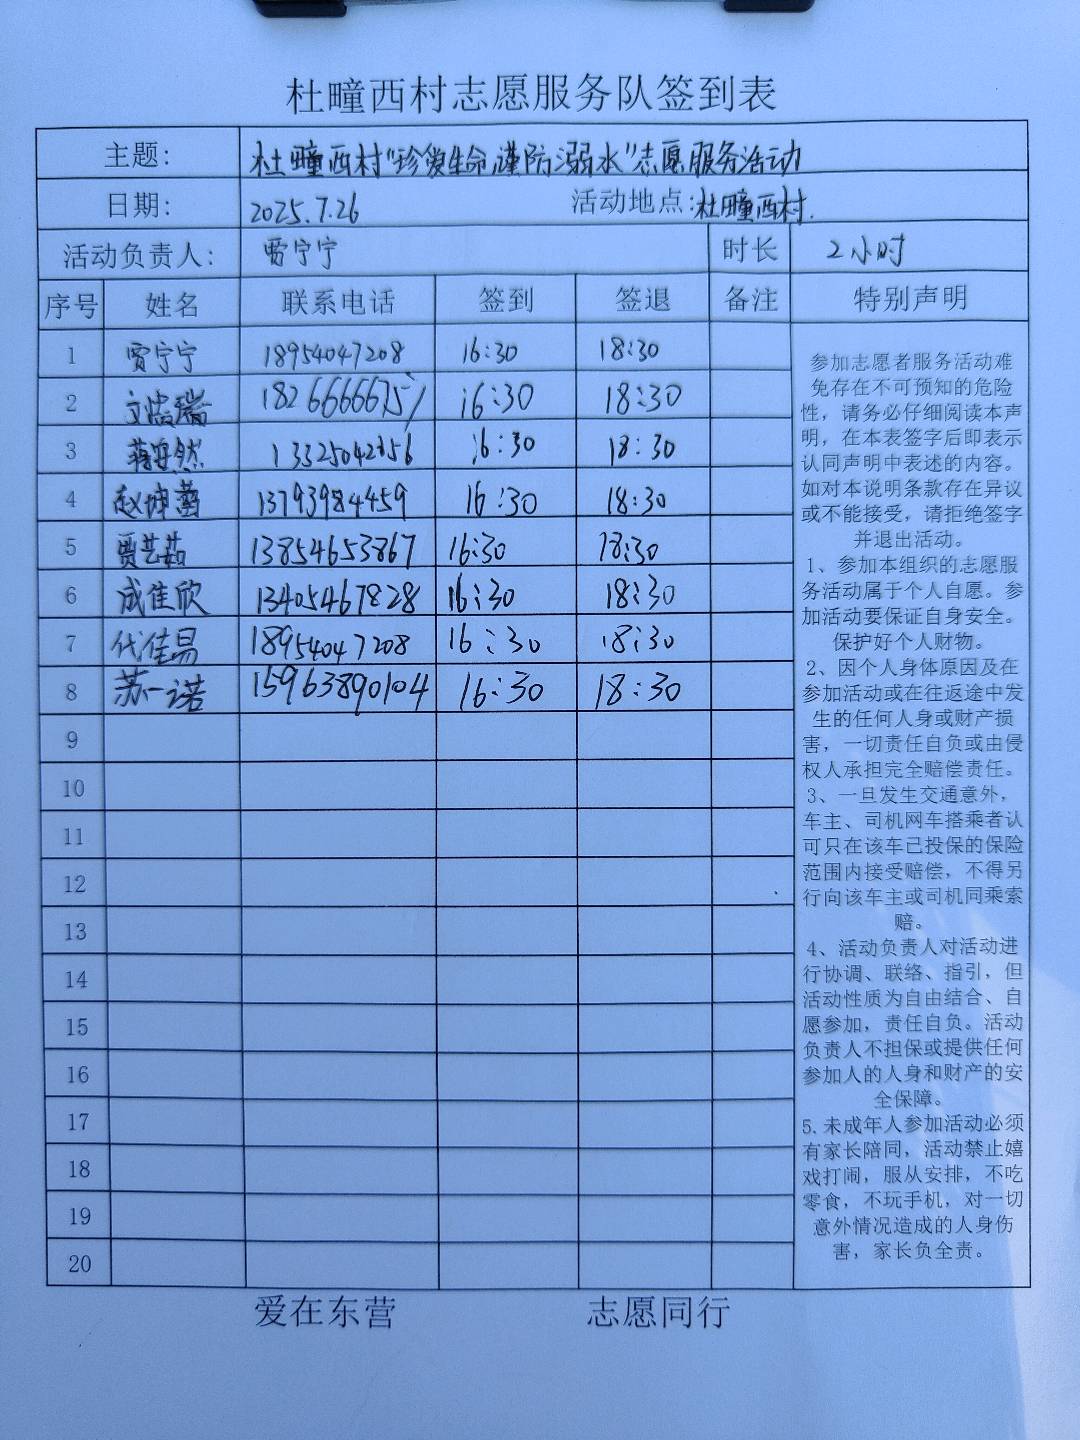 杜疃西村志愿服务队签到表
主题: 杜疃西村"珍爱生命,谨防溺水"志愿服务活动
日期: 2025.7.26 活动地点:杜疃西村.
活动负责人: 贾宁宁 时长 2小时
序号 姓名 联系电话 签到 签退 备注 特别声明
1 贾宁宁 18954047208 16:30 18:30
2 16:30 18:30
3 16:30 18:30
4 13793984459 16:30 18:30
5 贾艺茹 13854653867 16:30 18:30
6 成佳欣 13405467828 16:30 18:30
7 代佳易 18954047208 16:30 18:30
8 苏一诺 15963890104 16:30 18:30
9
10
11
12
13
14
15
16
17
18
19
20
参加志愿者服务活动难
免存在不可预知的危险
性，请务必仔细阅读本声
明，在本表签字后即表示
认同声明中表述的内容。
如对本说明条款存在异议
或不能接受，请拒绝签字
并退出活动。
1、参加本组织的志愿服
务活动属于个人自愿。参
加活动要保证自身安全。
保护好个人财物。
2、因个人身体原因及在
参加活动或在往返途中发
生的任何人身或财产损
害，一切责任自负或由侵
权人承担完全赔偿责任。
3、一旦发生交通意外，
车主、司机网车搭乘者认
可只在该车已投保的保险
范围内接受赔偿，不得另
行向该车主或司机同乘索
赔。
4、活动负责人对活动进
行协调、联络、指引，但
活动性质为自由结合、自
愿参加，责任自负。活动
负责人不担保或提供任何
参加人的人身和财产的安
全保障。
5.未成年人参加活动必须
有家长陪同，活动禁止嬉
戏打闹，服从安排，不吃
零食，不玩手机，对一切
意外情况造成的人身伤
害，家长负全责。
爱在东营 志愿同行